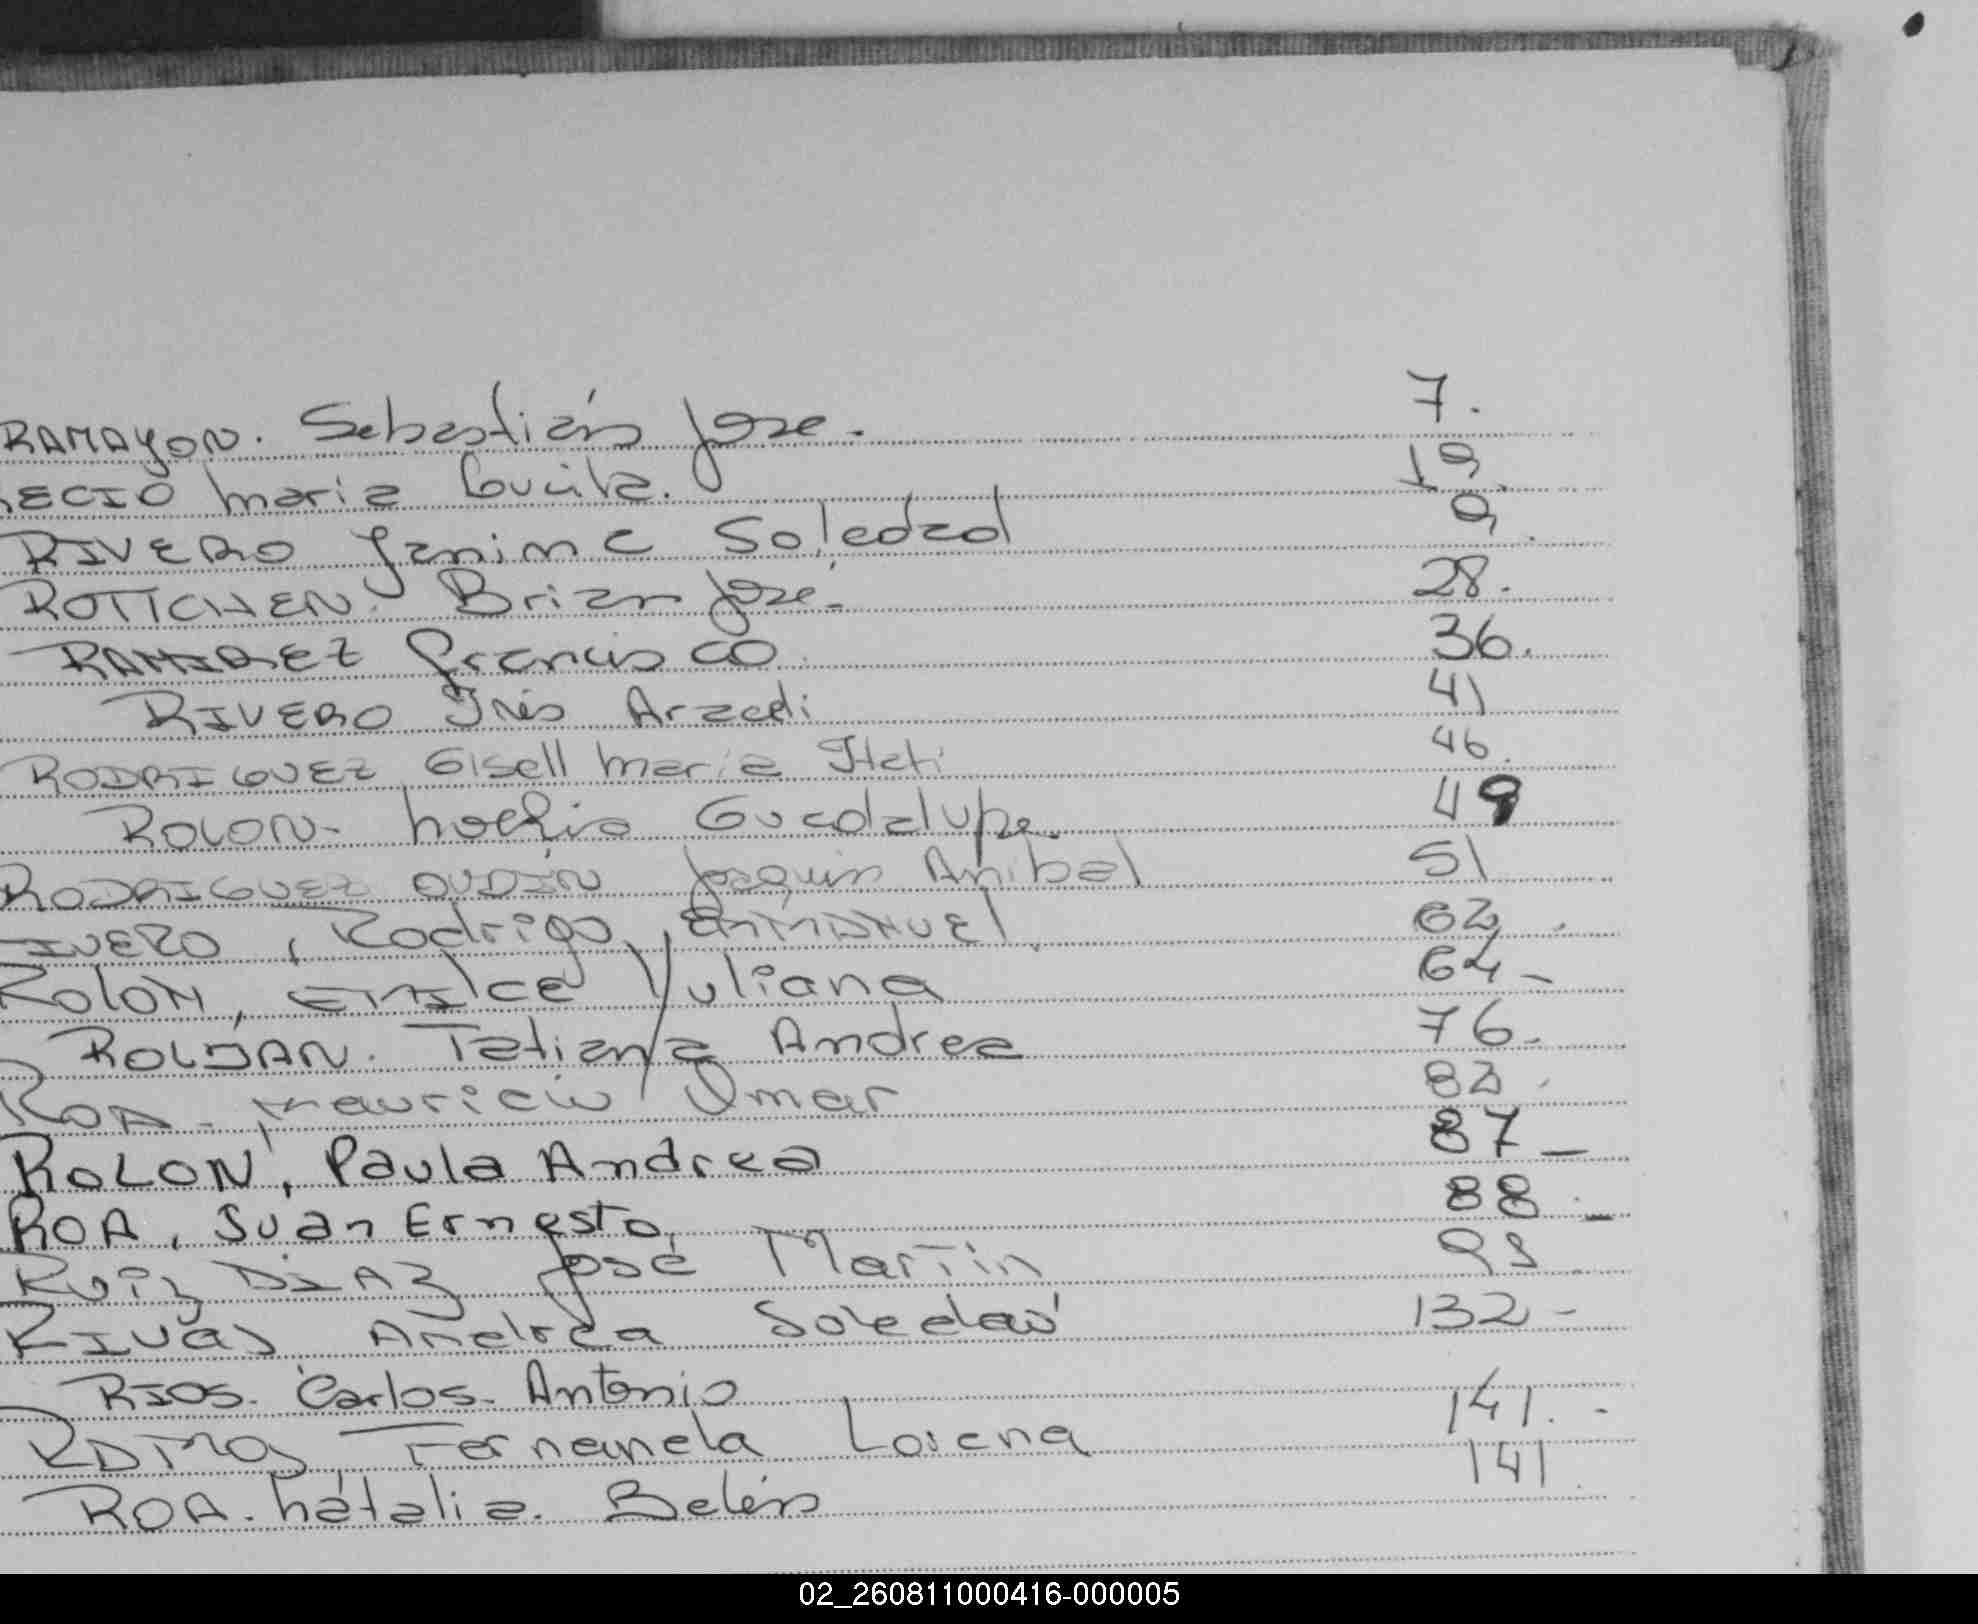 RAMAYON. Sebastián José. 7.
RECIO María Lucila. 19.
RIVERO Janina Soledad 9.
ROTTCHEN. Brian José. 28.
RAMIREZ Francisco 36.
RIVERO Inés Araceli 41
RODRIGUEZ Gisell María Itatí 46.
ROLON. Noelia Guadalupe. 49
RODRIGUEZ OUDÍN Joaquín Anibal 51
IVERO, Rodrigo, EMMANUEL. 62.
Rolon, Emilce Yuliana 64-
ROLDAN. Tatiana Andrea 76.
ROA. Mauricio Omar 82.
ROLON, Paula Andrea 87-
ROA, Juan Ernesto. 88-
Ruiz DIAZ José Martín
RIVAS Andrea Soledad 132-
RIOS. Carlos. Antonio 141.-
RAMOS Lorena 141
ROA. Natalia. Belén
02_260811000416-000005